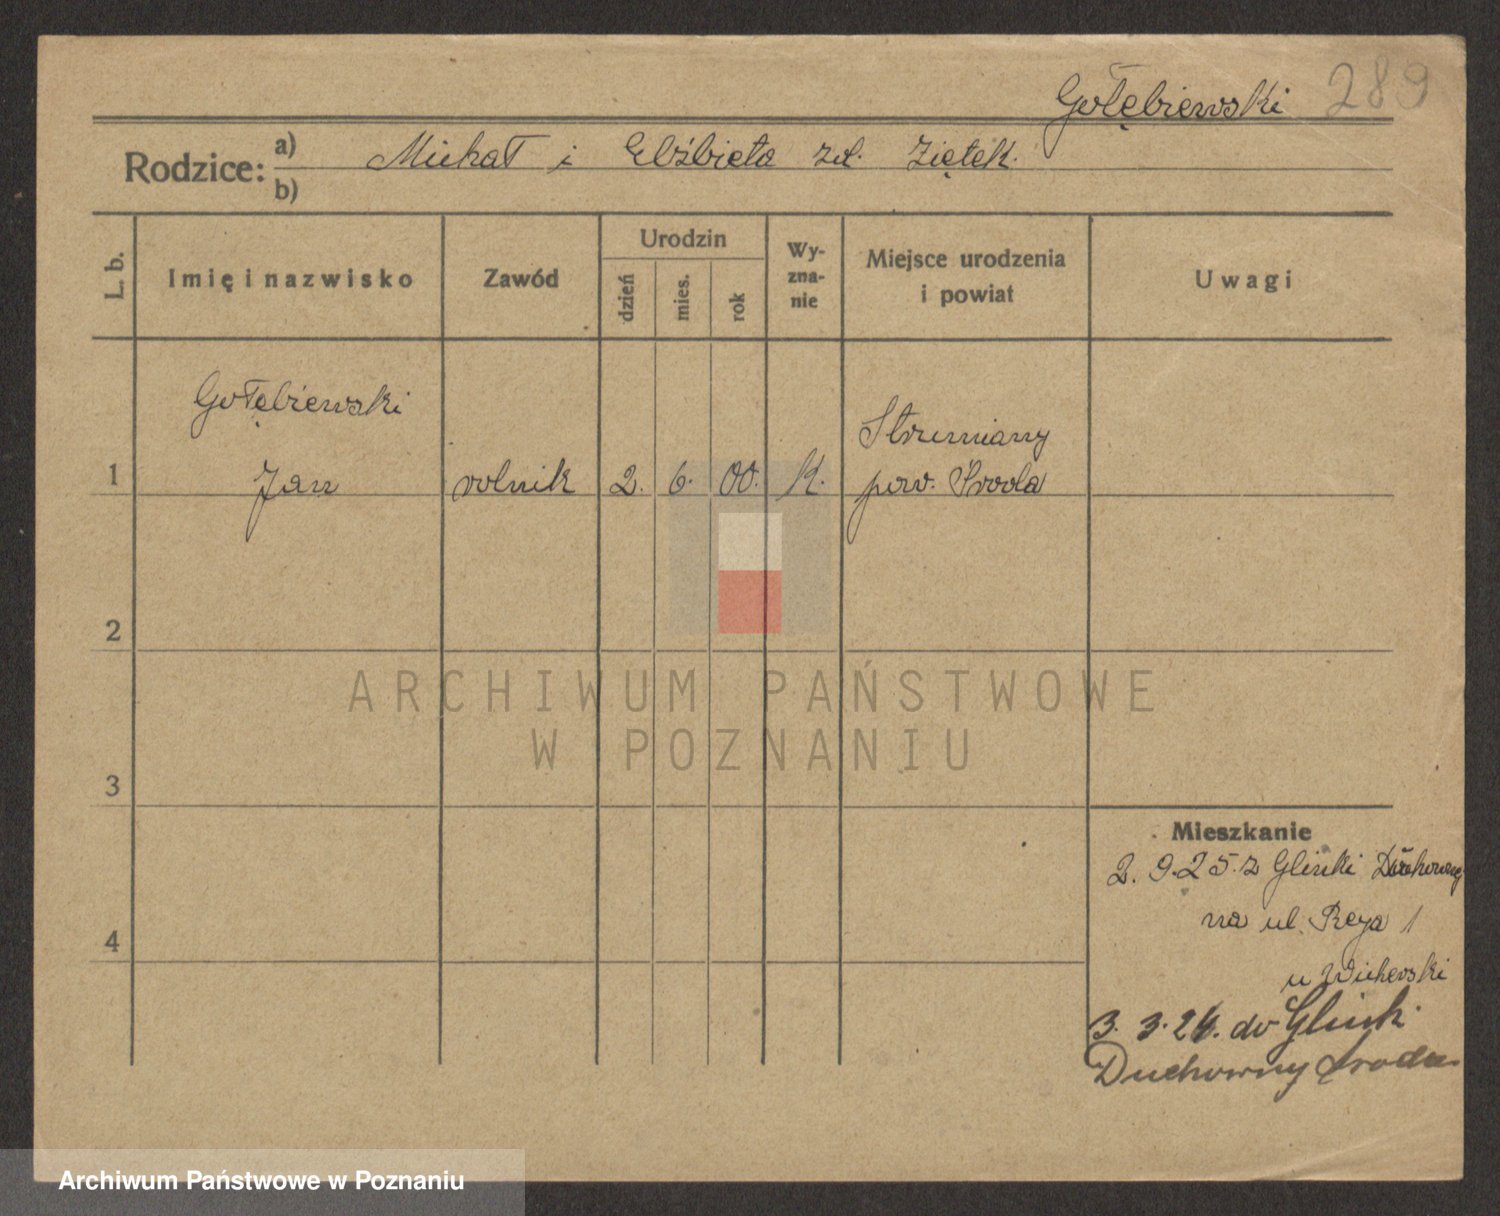 Gołębiewski 289
Rodzice: a) Michał i Elżbieta zd. Ziętek.
b)
L. b. Imię i nazwisko Zawód Urodzin dzień mies. rok Wy-zna-nie Miejsce urodzenia i powiat Uwagi
Gołębiewski Strumiany
1 Jan rolnik 2. 6. 00. K. pow. Środa
2
ARCHIWUM PAŃSTWOWE
W POZNANIU
3
Mieszkanie
2. 9.25. z Glinki Duchowne
na ul. Reya 1
4
u Wichervski
3. 3. 26. do Glink.
Duchowny Środa
Archiwum Państwowe w Poznaniu